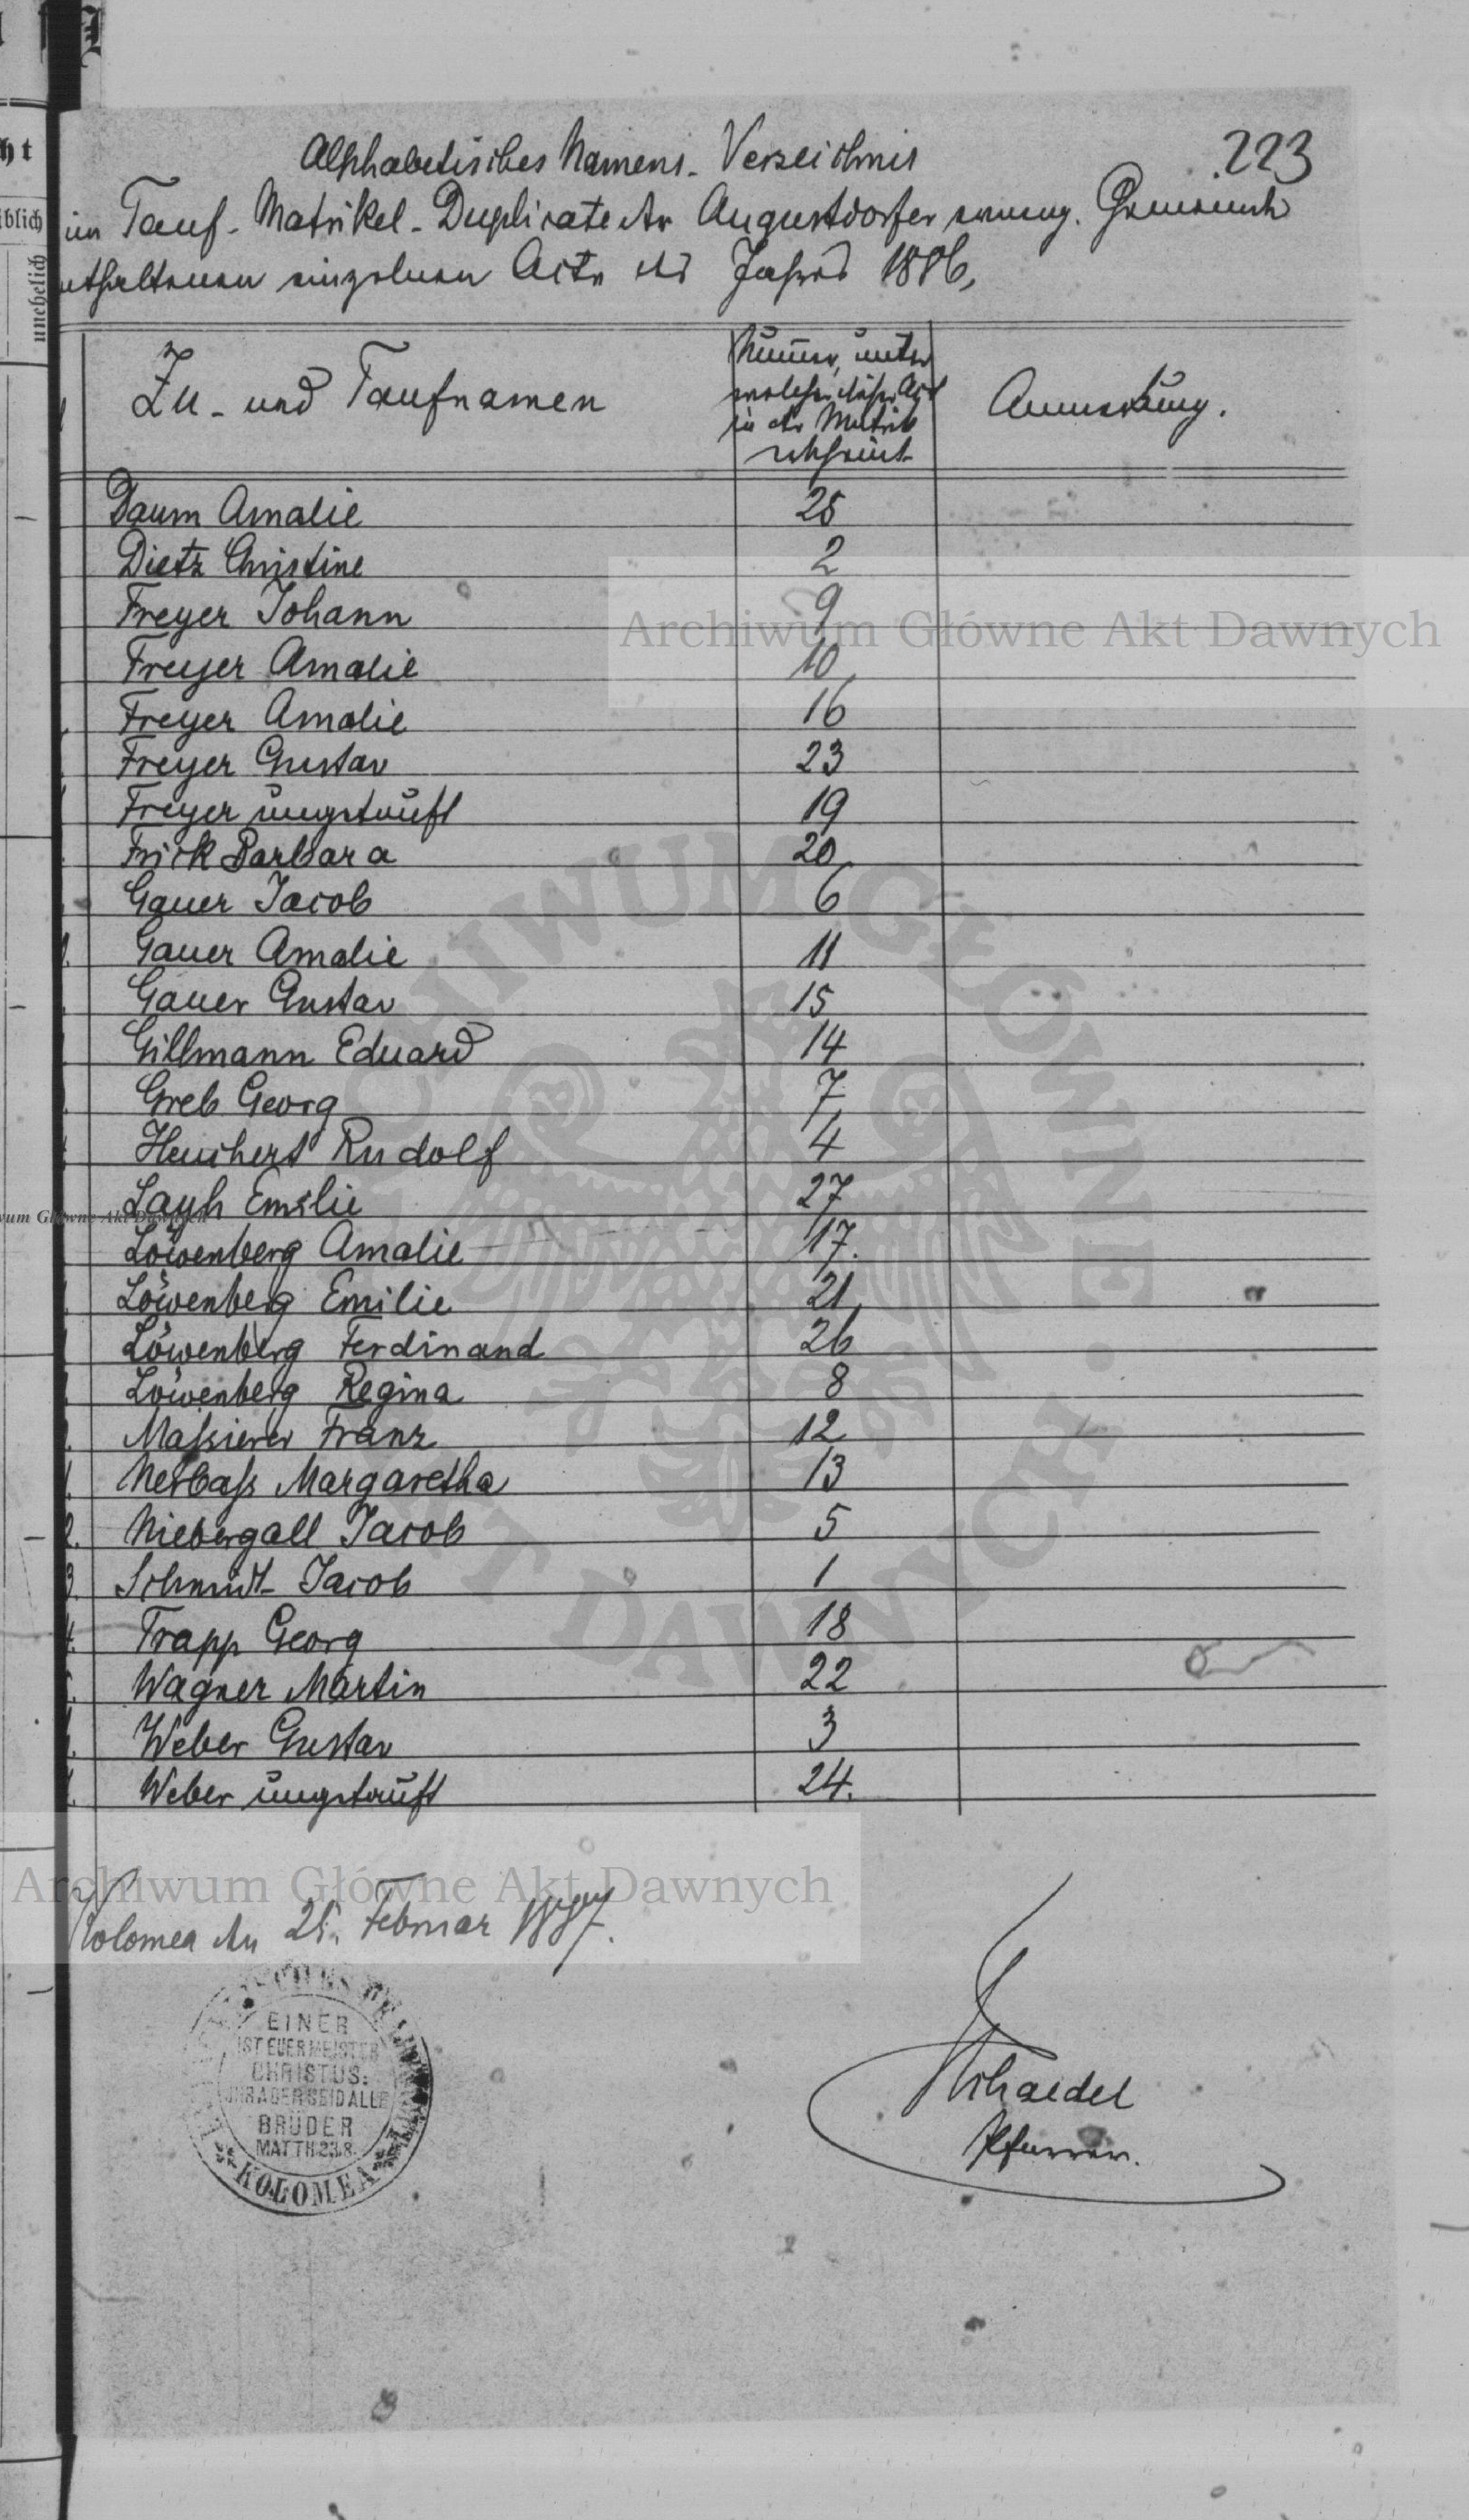 223
Alphabetisches Namens-Verzeichnis
im Tauf-Matrikel-Duplicate der Augustdorfer evang. Gemeinde
enthaltenen einzelnen Acte des Jahres 1886,
Zu- und Taufnamen
Nummer, unter
welcher dieser Act
in der Matrik
erscheint
Anmerkung.
Daum Amalie 25
Dietz Christine 2
Freyer Johann 9
Freyer Amalie 10
Freyer Amalie 16
Freyer Gustav 23
Freyer ungetauft 19
Frick Barbara 20
Gauer Jacob 6
Gauer Amalie 11
Gauer Gustav 15
Gillmann Eduard 14
Greb Georg 7
Heuchert Rudolf 4
Layh Emilie 27
Löwenberg Amalie 17.
Löwenberg Emilie 21
Löwenberg Ferdinand 26
Löwenberg Regina 8
Maßierer Franz 12
Nerbaß Margaretha 13
Niebergall Jacob 5
Schmidt Jacob 1
Trapp Georg 18
Wagner Martin 22
Weber Gustav 3
Weber ungetauft 24.
Kolomea den 25. Februar 1887.
EINER
IST EUER MEISTER
CHRISTUS:
IHR ABER SEID ALLE
BRÜDER
MATTH. 23.8.
KOLOMEA
Pfarrer.
iblich
unehelich
Archiwum Główne Akt Dawnych
Archiwum Główne Akt Dawnych
ARCHIWUM GŁÓWNE AKT DAWNYCH